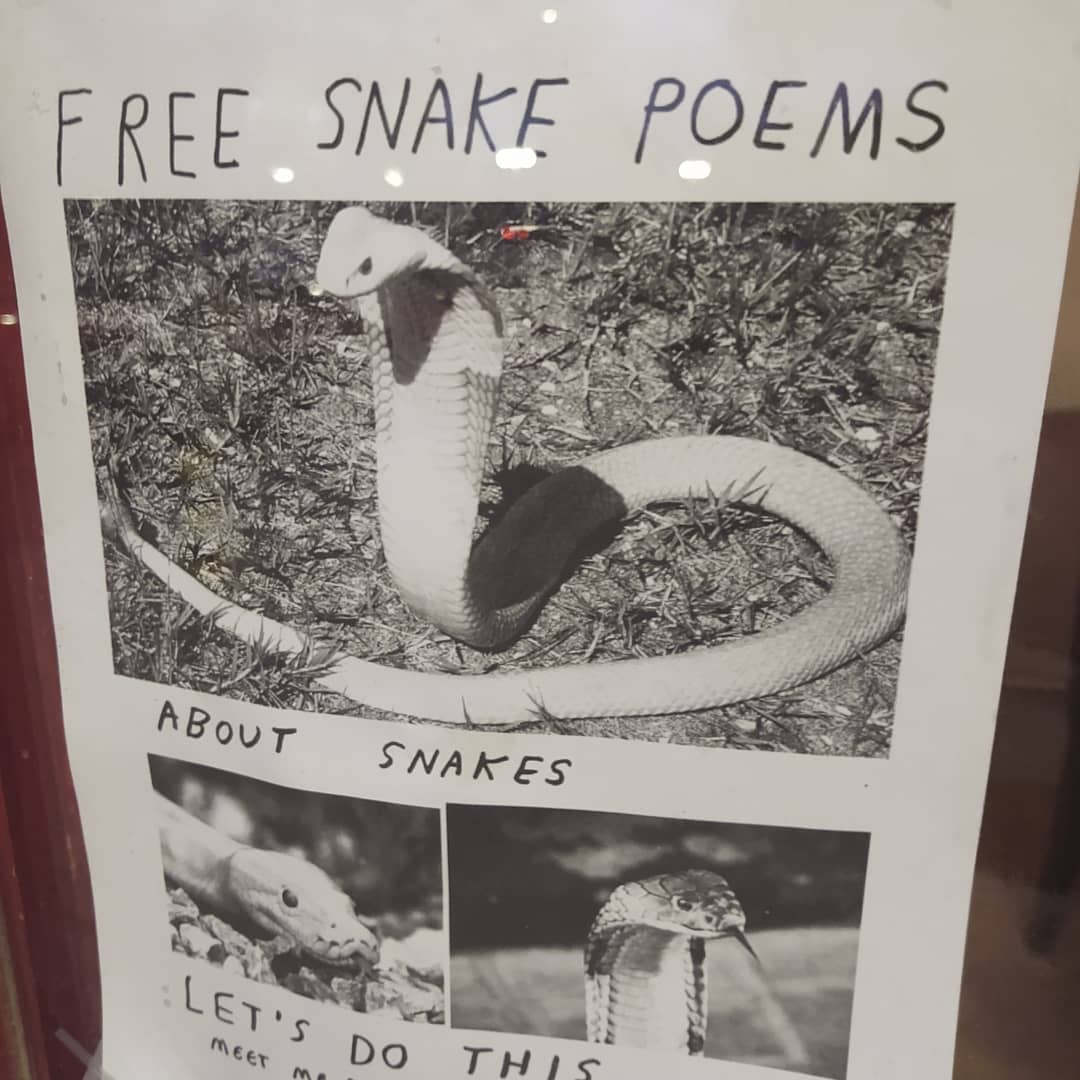 FREE SNAKE POEMS
ABOUT SNAKES
LET'S DO THIS
MEET